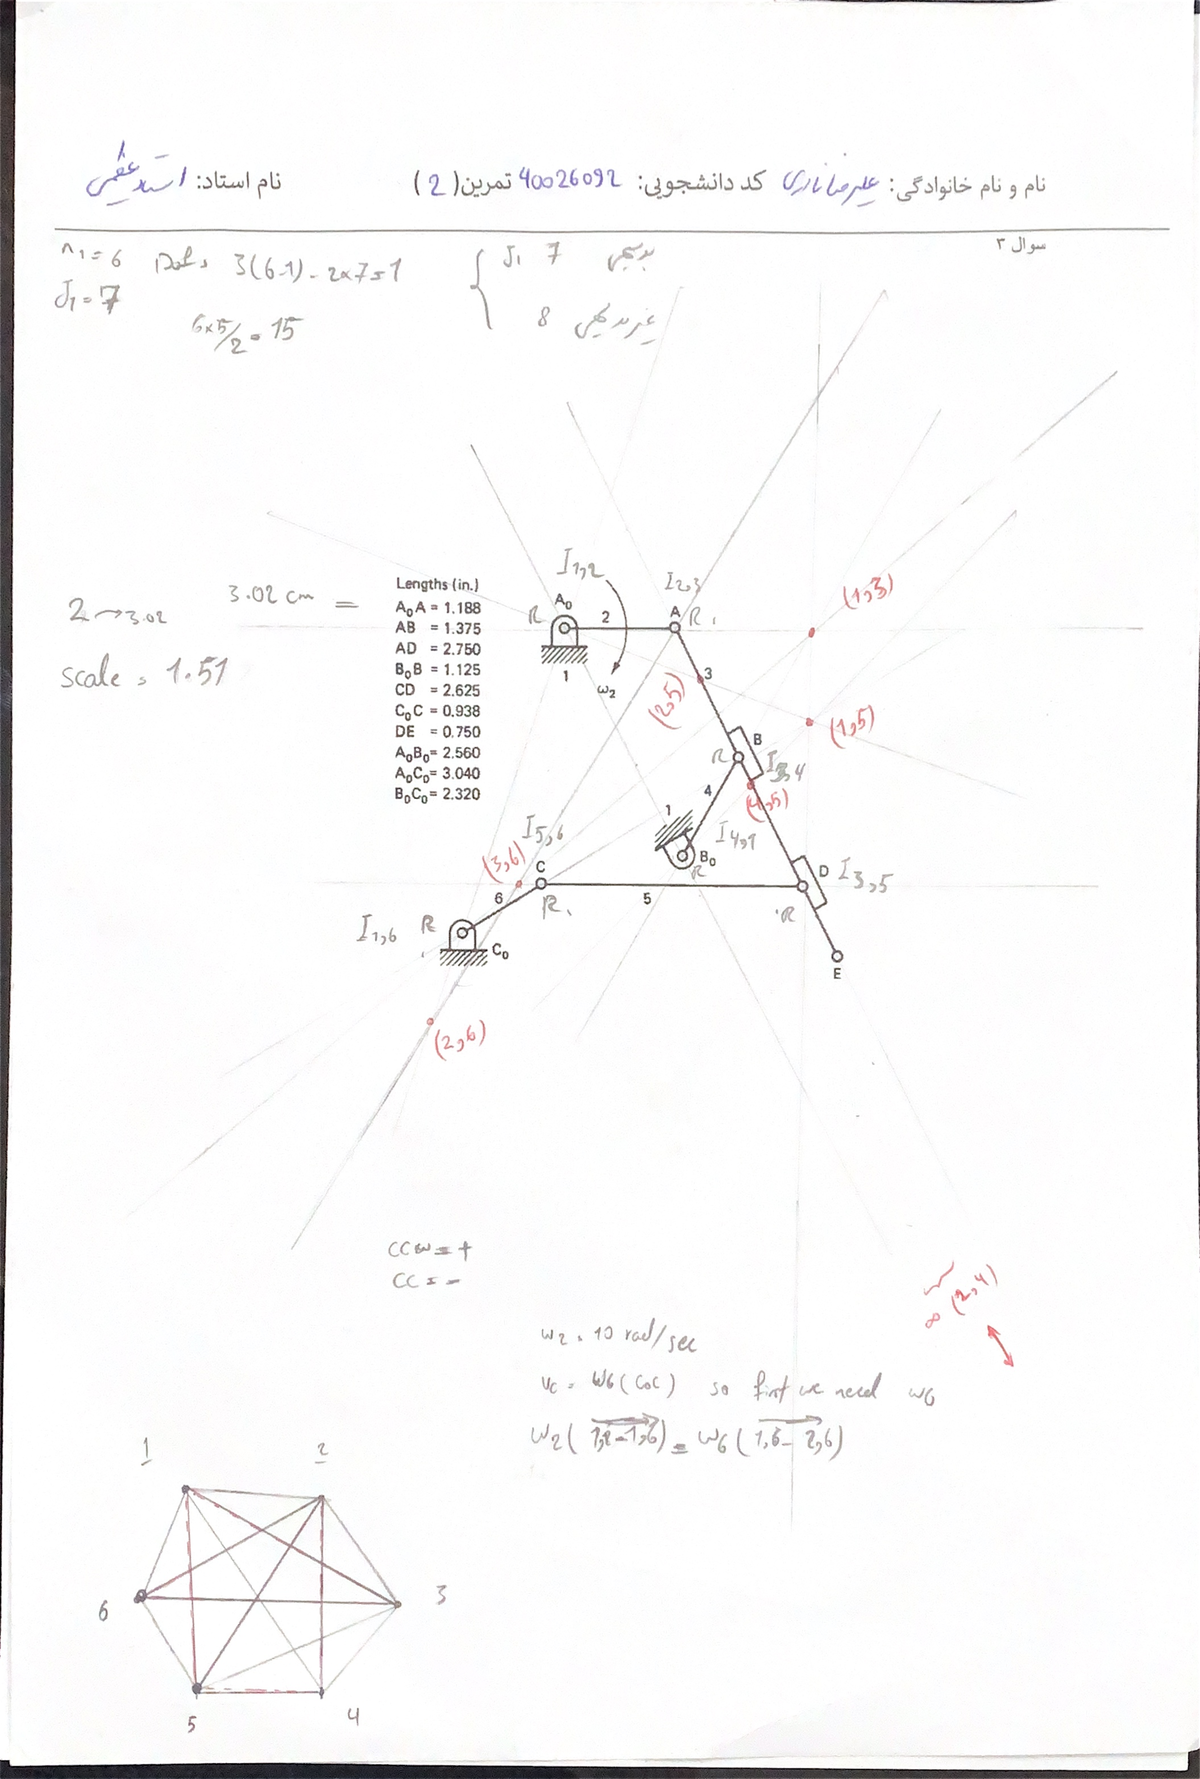 نام و نام خانوادگی: علیرضا نادری کد دانشجویی: 40026092 تمرین( 2 ) نام استاد: استاد عظیمی
سوال ۳
n₁ = 6 Dof = 3(6-1) - 2×7 = 1
J₁ = 7
6×5/2 = 15
J₁ 7 بدیهی
8 غیر بدیهی
2 → 3.02
3.02 cm =
scale = 1.51
Lengths (in.)
A₀A = 1.188
AB = 1.375
AD = 2.750
B₀B = 1.125
CD = 2.625
C₀C = 0.938
DE = 0.750
A₀B₀ = 2.560
A₀C₀ = 3.040
B₀C₀ = 2.320
I₁,₂
I₂,₃
A₀
R
2
A
R
1
ω₂
3
(1,3)
(2,5)
(1,5)
R
B
I₃,₄
4
(4,5)
1
I₄,₁
B₀
R
I₅,₆
(3,6)
C
6
R
5
D
I₃,₅
R
I₁,₆
R
C₀
E
(2,6)
CCW = +
CC = -
∞ (2,4)
ω₂ = 10 rad/sec
v_C = ω₆ (C₀C) so first we need ω₆
ω₂ ( 1,2 - 1,6 ) = ω₆ ( 1,6 - 2,6 )
1
2
6
3
5
4